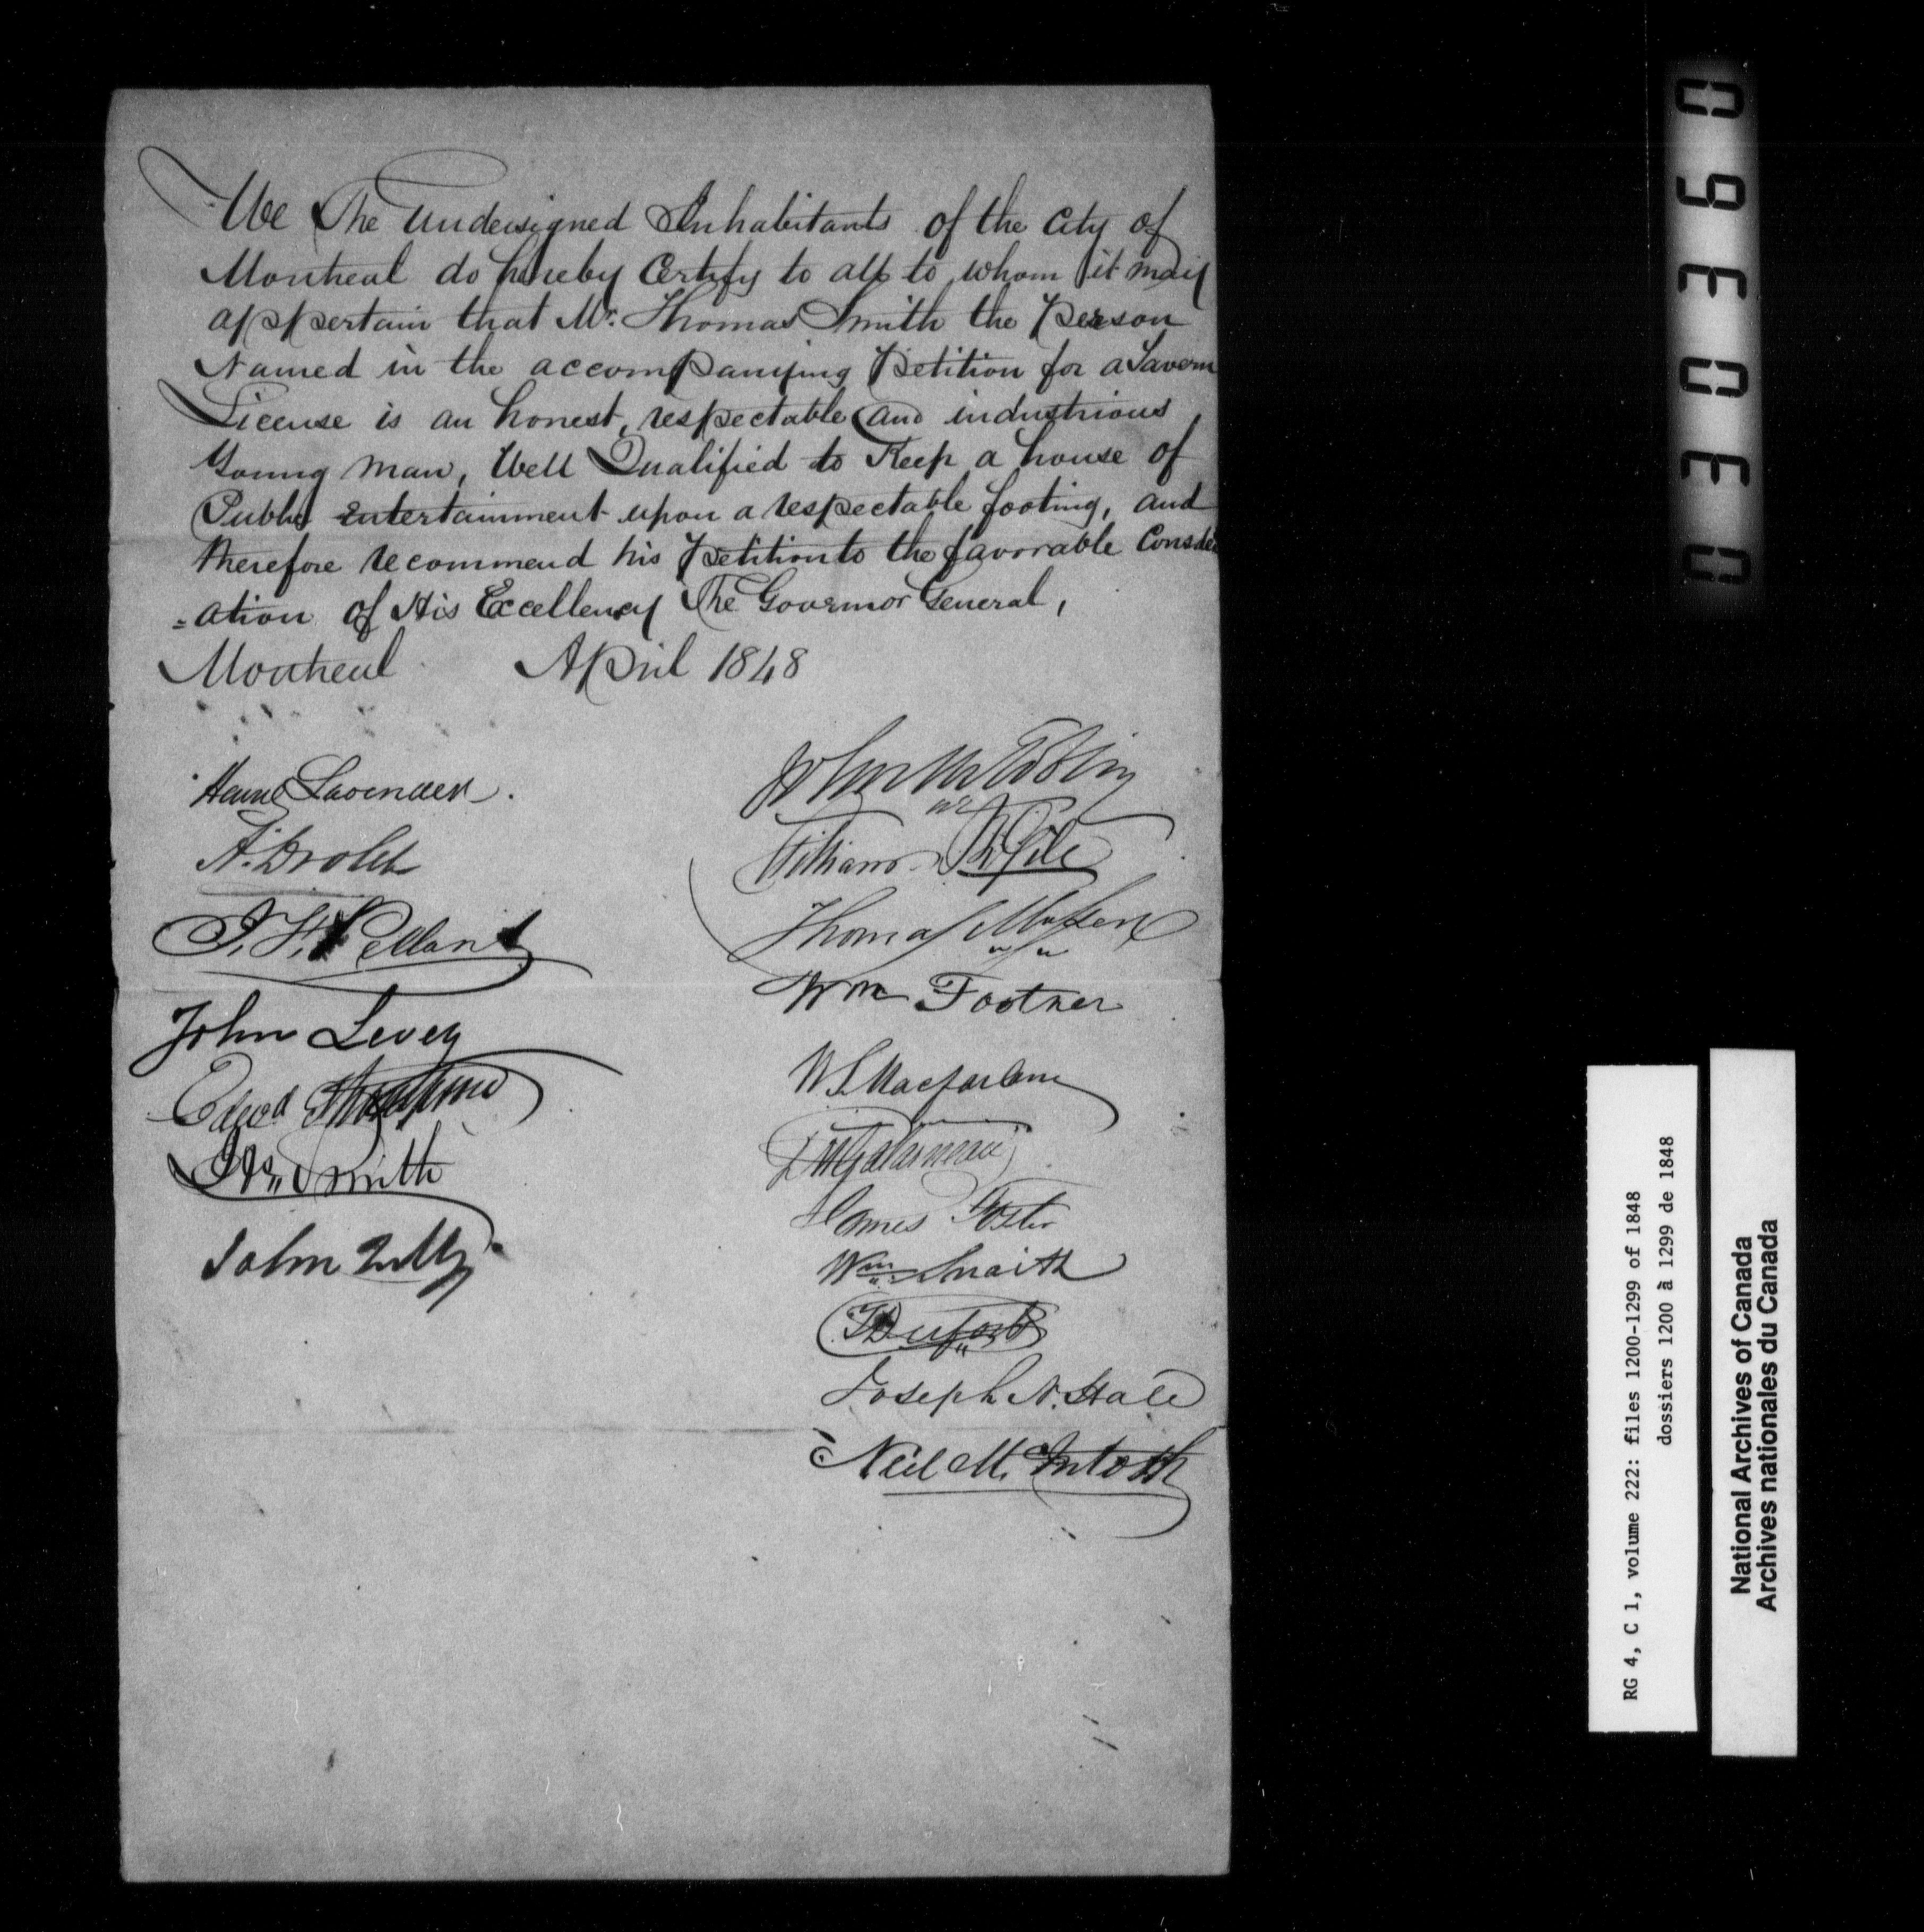 We The Undersigned Inhabitants of the City of
Montreal do hereby Certify to all to whom it may
appertain that Mr. Thomas Smith the Person
Named in the accompanying Petition for a Tavern
License is an honest, respectable and industrious
Young man, Well Qualified to Keep a house of
Public Entertainment upon a respectable footing, and
therefore recommend his Petition to the favorable Consder
=ation of His Excellency The Governor General,
Montreal April 1848
Lavender.
A. Drolet
John Levey
Edwd
Smith
John
John
William
Thomas
Wm Footner
W S Macfarlane
James Foster
Wm Snaith
Dufort
Joseph N. Hale
Neil Mc Intosh
030360
RG 4, C 1, volume 222: files 1200-1299 of 1848
dossiers 1200 à 1299 de 1848
National Archives of Canada
Archives nationales du Canada